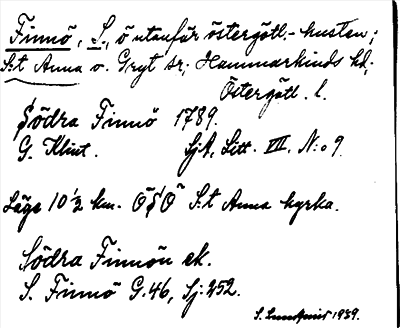 Finnö, S., ö utanför östergötl.-kusten;
S:t Anna o. Gryt sr; Hammarkinds hd;
Östergötl. l.
Södra Finnö 1789.
G. Klint. SjA, Litt. VII. N:o 9.
Läge 10 1/2 km. ÖSÖ S:t Anna kyrka.
Södra Finnön ek.
S. Finnö G.46, Sj: 252.
S. Lundqvist 1939.